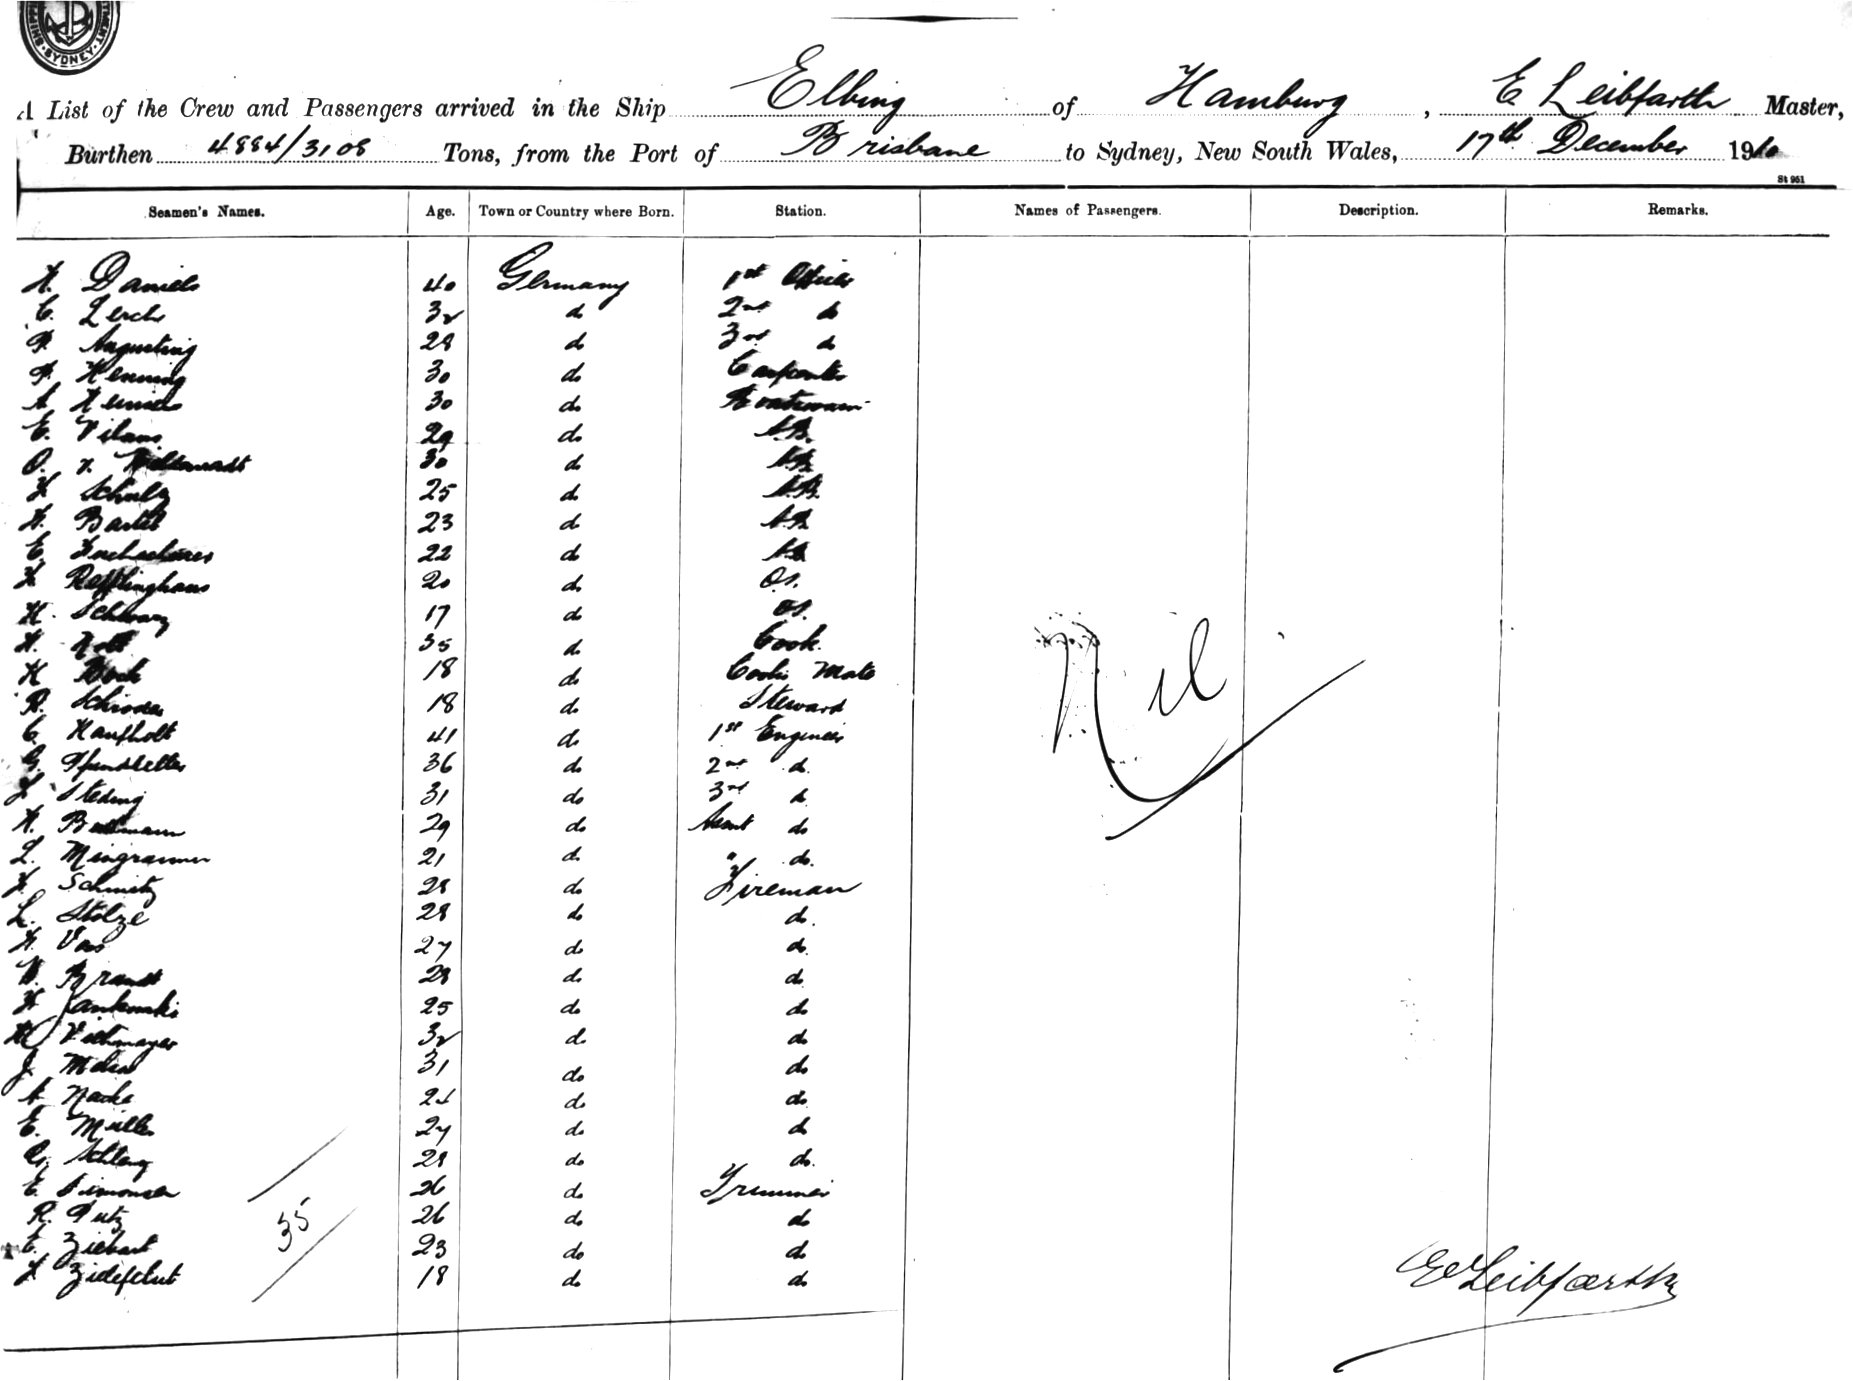 SYDNEY
A List of the Crew and Passengers arrived in the Ship Elbing of Hamburg, E Leibfarth Master,
Burthen 4884/3108 Tons, from the Port of Brisbane to Sydney, New South Wales, 17th December 1910
St 951
Seamen's Names. Age. Town or Country where Born. Station. Names of Passengers. Description. Remarks.
H. Daniels 40 Germany 1st Officer
C. Lerche 32 do 2nd do
P. Augusting 28 do 3rd do
P. Henning 30 do Carpenter
A. 30 do Boatswain
E. Vilans 29 do A.B.
O. v. 30 do A.B.
F Schulz 25 do A.B.
H. Bartel 23 do A.B.
E. 22 do A.B.
F Refflinghaus 20 do O.S.
H. Schwarz 17 do O.S.
H. Nolt 35 do Cook.
H Bock 18 do Cooks Mate
R. Schröder 18 do Steward
C. Haufholt 41 do 1st Engineer
G. 36 do 2nd do
F Steding 31 do 3rd do
H. 29 do Assnt do
L. 21 do " do.
F Schmitz 28 do Fireman
L. Stolze 28 do do.
H. Voss 27 do do
W. Brandt 28 do do
F Jankowski 25 do do
Viethmayer 32 do do
J 31 do do
A Nacke 24 do do
E. Müller 27 do do
G. Schlenz 28 do do.
E. Simonsen 26 do Trimmer
R. Putz 26 do do
E. Ziebart 23 do do
F 18 do do
35
Nil
E Leibfarth